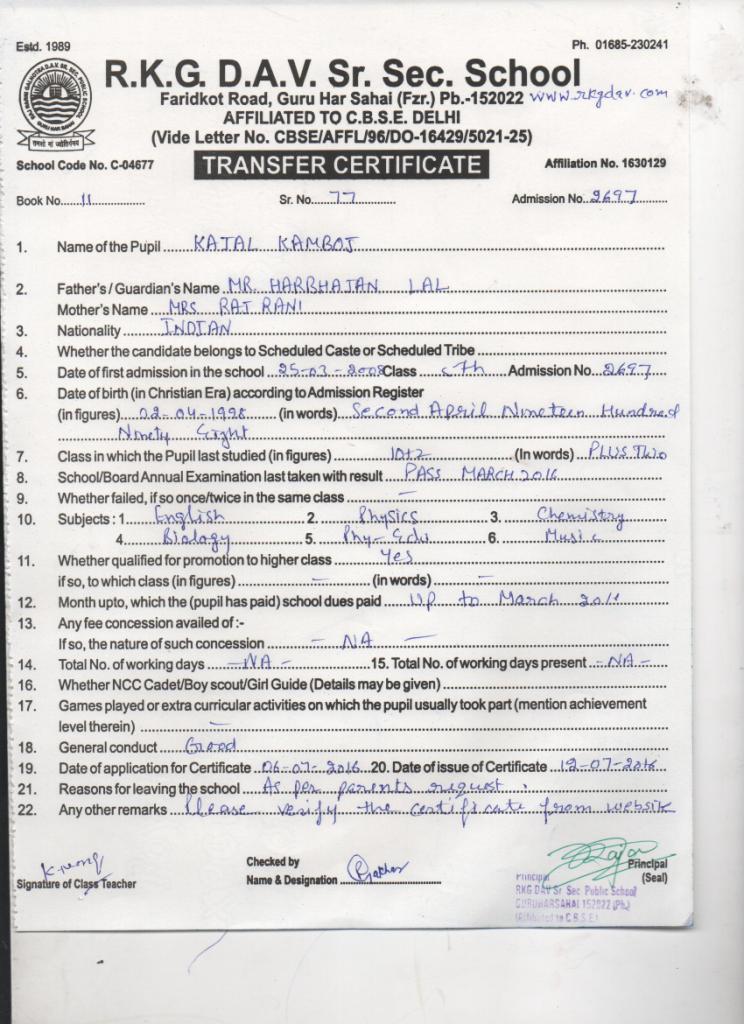 Estd. 1989 Ph. 01685-230241
R.K.G. D.A.V. Sr. Sec. School
Faridkot Road, Guru Har Sahai (Fzr.) Pb.-152022 www.rkgdav.com
AFFILIATED TO C.B.S.E. DELHI
(Vide Letter No. CBSE/AFFL/96/DO-16429/5021-25)
School Code No. C-04677 TRANSFER CERTIFICATE Affiliation No. 1630129
Book No. 11 Sr. No. 77 Admission No. 2697
1. Name of the Pupil KAJAL KAMBOJ
2. Father's / Guardian's Name MR. HARBHAJAN LAL
Mother's Name MRS RAJ RANI
3. Nationality INDIAN
4. Whether the candidate belongs to Scheduled Caste or Scheduled Tribe
5. Date of first admission in the school 25-03-2008 Class Admission No. 2697
6. Date of birth (in Christian Era) according to Admission Register
(in figures) 02-04-1998 (in words) Second April Nineteen Hundred
Ninety Eight
7. Class in which the Pupil last studied (in figures) 10+2 (In words) PLUS TWO
8. School/Board Annual Examination last taken with result PASS MARCH 2016
9. Whether failed, if so once/twice in the same class —
10. Subjects : 1. English 2. Physics 3. Chemistry
4. Biology 5. Phy-Edu 6. Music
11. Whether qualified for promotion to higher class Yes
if so, to which class (in figures) — (in words) —
12. Month upto, which the (pupil has paid) school dues paid Up to March 2016
13. Any fee concession availed of :-
If so, the nature of such concession — NA —
14. Total No. of working days —NA- 15. Total No. of working days present -NA-
16. Whether NCC Cadet/Boy scout/Girl Guide (Details may be given)
17. Games played or extra curricular activities on which the pupil usually took part (mention achievement
level therein) —
18. General conduct Good
19. Date of application for Certificate 06-07-2016 20. Date of issue of Certificate 12-07-2016
21. Reasons for leaving the school As per parents request.
22. Any other remarks Please verify the certificate from website
Signature of Class Teacher
Checked by
Name & Designation
Principal
(Seal)
Principal
RKG DAV Sr Sec Public School
GURUHARSAHAI 152022 (Pb.)
(Affiliated to C.B.S.E)